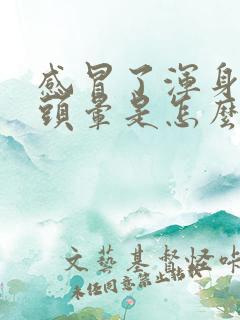 感冒了渾身
頭暈是怎麼
文藝基督怪味
未經同意禁止轉載